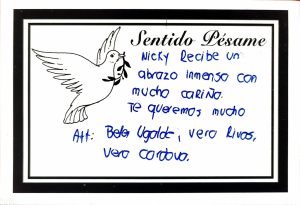 Sentido Pésame
Nicky Recibe un
abrazo inmenso con
mucho cariño.
Te queremos mucho
Att: Beba Ugalde, Vera Rivas,
Vera Cordova.